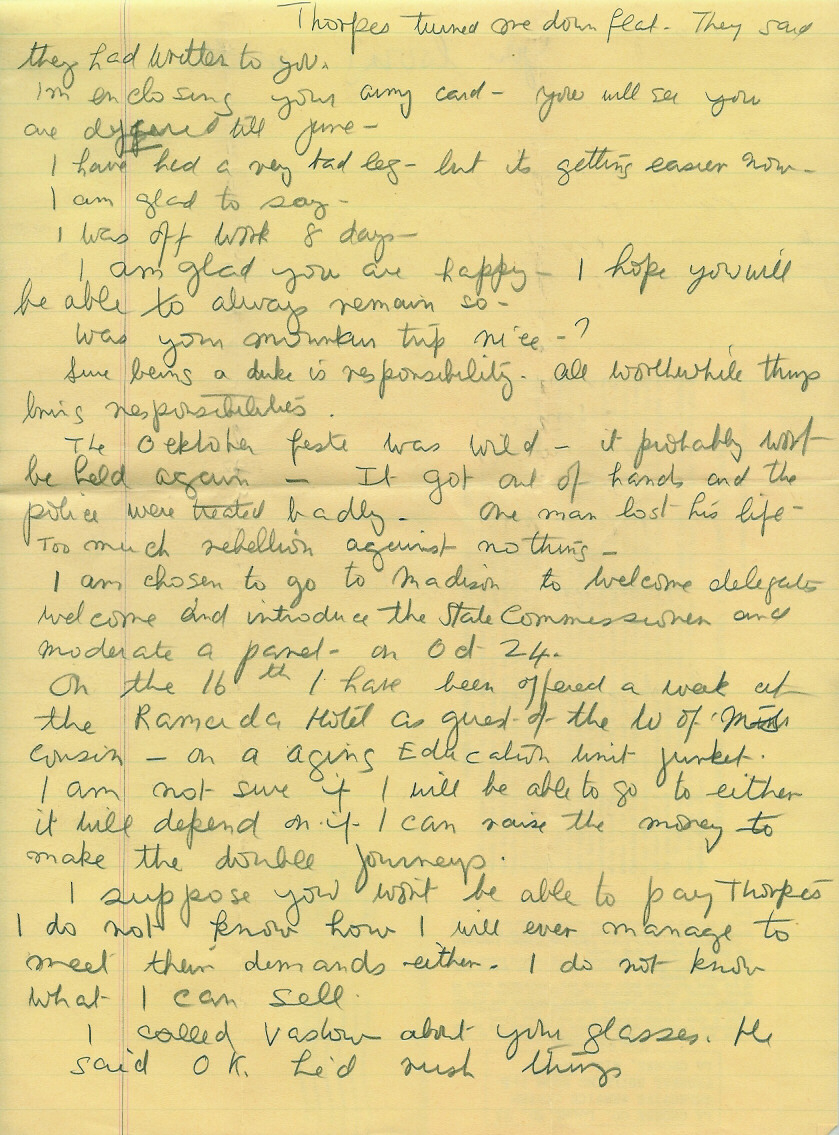 Thorpes turned me down flat. They said
they had written to you.
Im enclosing your army card - you will see you
are deffered till june -
I have had a very bad leg - but its getting easier now -
I am glad to say -
I was off work 8 days -
I am glad you are happy - I hope you will
be able to always remain so -
Was your mountain trip nice - ?
Sure being a duke is responsibility. all worthwhile things
bring responsibilities.
The Oektober feste was wild - it probably wont
be held again - It got out of hands and the
police were treated badly. One man lost his life -
Too much rebellion against nothing -
I am chosen to go to Madison to welcome delegates
welcome and introduce the State Commissioner and
moderate a panel - on Oct 24.
On the 16th I have been offered a week at
the Ramada Hotel as guest of the U of
consin - on a aging Education unit junket.
I am not sure if I will be able to go to either
it will depend on if I can raise the money to
make the double journeys.
I suppose you wont be able to pay Thorpes
I do not know how I will ever manage to
meet their demands either. I do not know
what I can sell.
I called Vaslow about your glasses. He
said OK. he'd rush things